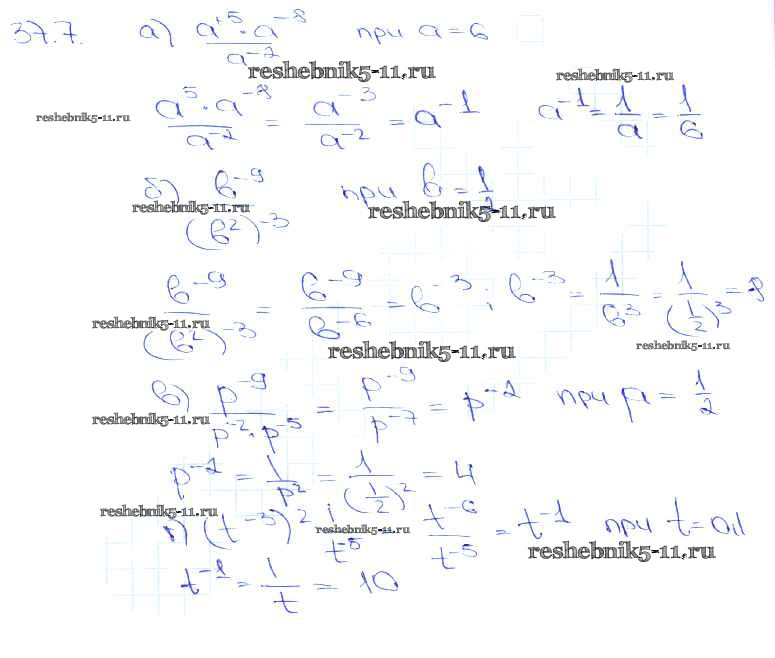 37.7. а) a⁵·a⁻⁸ / a⁻² при a = 6
reshebnik5-11.ru
reshebnik5-11.ru
reshebnik5-11.ru
a⁵·a⁻⁸ / a⁻² = a⁻³ / a⁻² = a⁻¹ a⁻¹ = 1/a = 1/6
б) b⁻⁹ / (b²)⁻³ при b = 1/2
reshebnik5-11.ru
reshebnik5-11.ru
b⁻⁹ / (b²)⁻³ = b⁻⁹ / b⁻⁶ = b⁻³; b⁻³ = 1/b³ = 1/(1/2)³ = 8
reshebnik5-11.ru
reshebnik5-11.ru
reshebnik5-11.ru
в) p⁻⁹ / p⁻²·p⁻⁵ = p⁻⁹ / p⁻⁷ = p⁻² при p = 1/2
reshebnik5-11.ru
p⁻² = 1/p² = 1/(1/2)² = 4
reshebnik5-11.ru
г) (t⁻³)² : t⁻⁵ t⁻⁶ / t⁻⁵ = t⁻¹ при t = 0,1
reshebnik5-11.ru
reshebnik5-11.ru
t⁻¹ = 1/t = 10